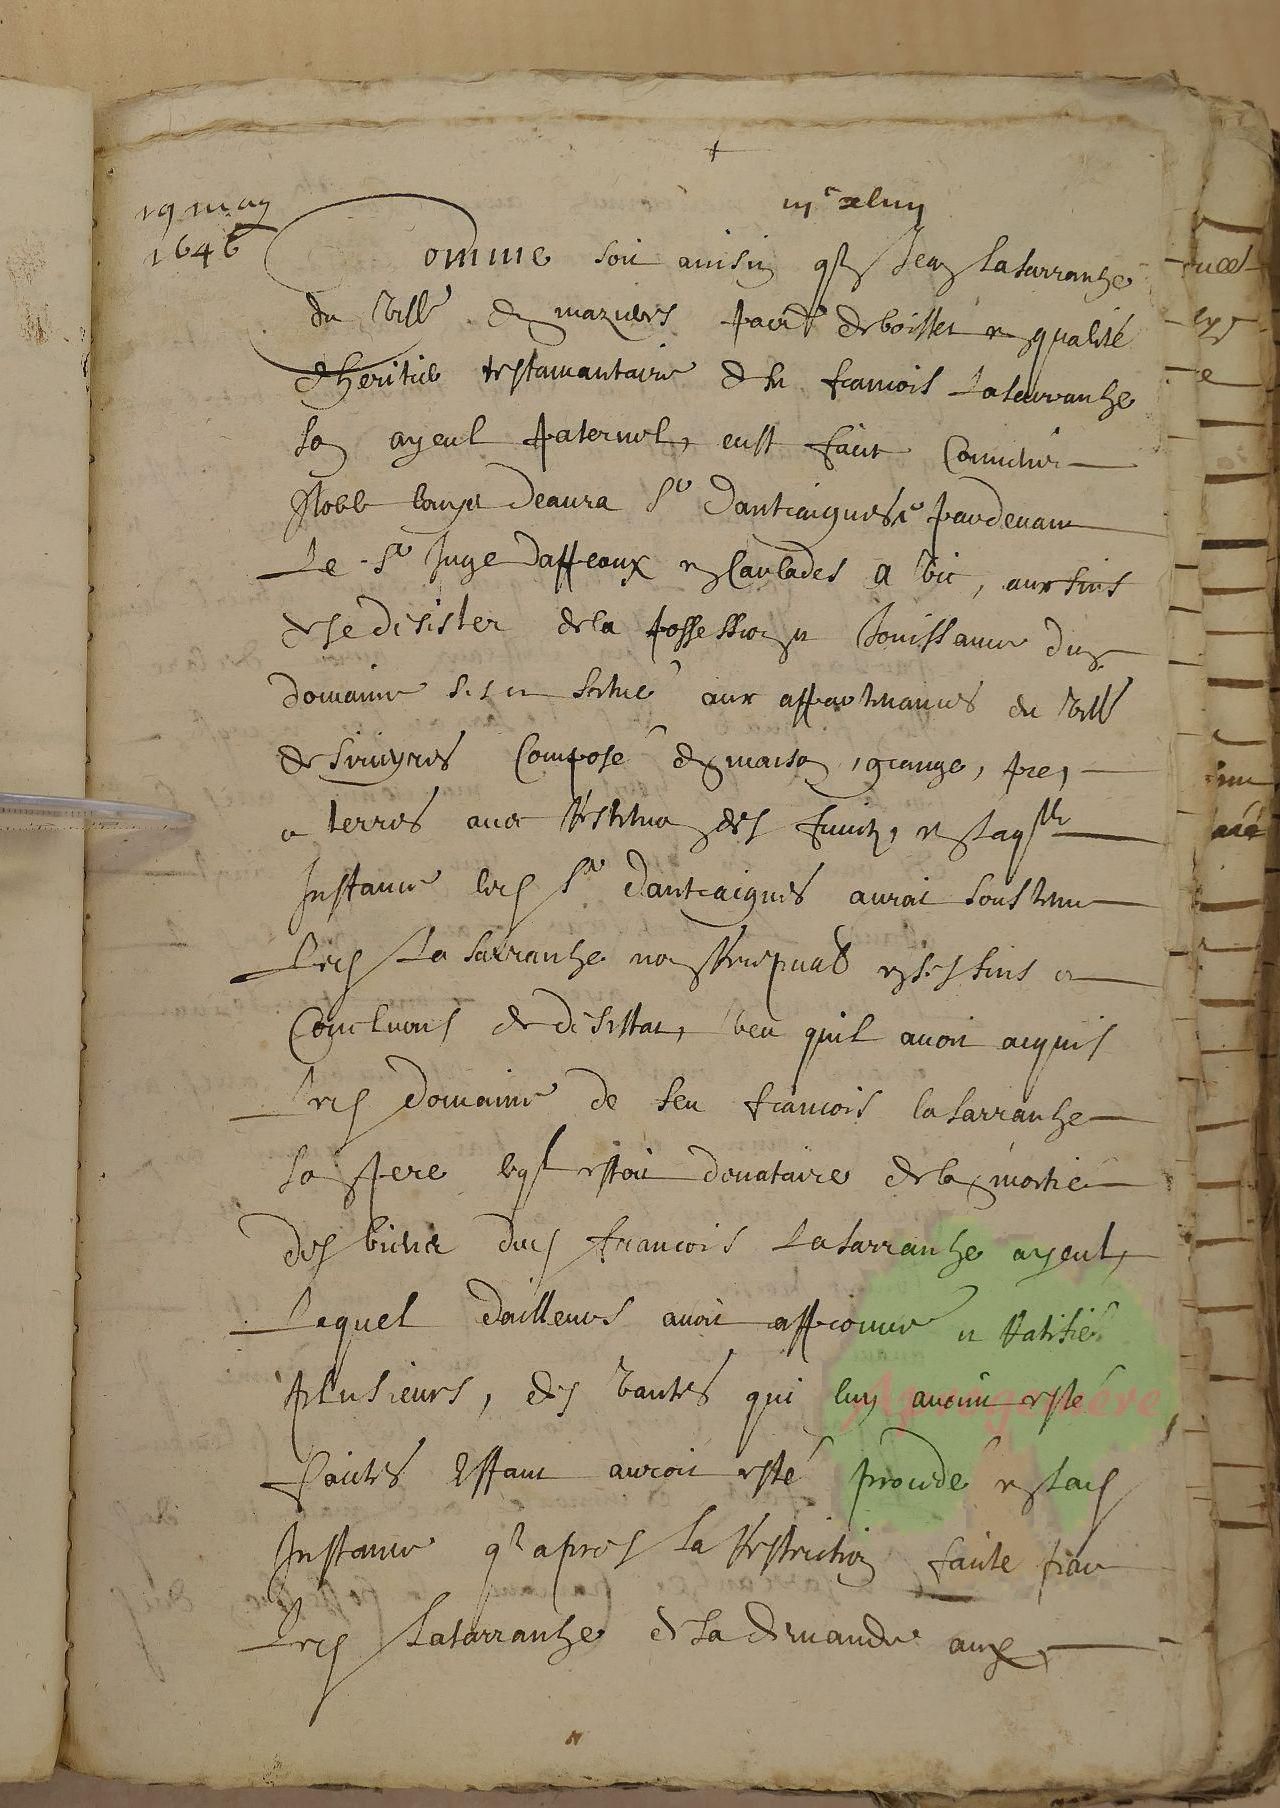 19 may
1646
iijc xlviij
Comme soit ainsin qe Jean Lasarranhe
du vill[e] de maziers par[r] de boisset en qualité
d'heritier testamantaire de fu francois Lasarranhe
son ayeul paternel, eust faict Convenir
Noble louys deaura Sr dantraigues pardevant
Le Sr Juge dappeaux en Carlades a vic, aux fins
de se desister de la possession et Jouissance dung
domaine sis et scitué aux appartenances du vill[e]
de siruyres Composé de maison, grange, pre,
et terres avec restitution des fruicts, en laqlle
Instance led Sr dantraigues aurait soustenu
Led La Sarranhe non recepvable en ses fins et
Conclusions de desistat, veu quil avoit acquis
Led domaine de feu francois lasarranhe
son pere leql estoit donataire de la moitié
des biens dud francois Lasarranhe ayeul,
Lequel dailleurs avoit approuvé et ratifié
plusieurs, des vantes qui luy avoint esté
faictes Estant auroit esté procedé en lad
Instance qe apres la restriction faicte par
Led Lasarranhe de sa demande aux
Aprogenere